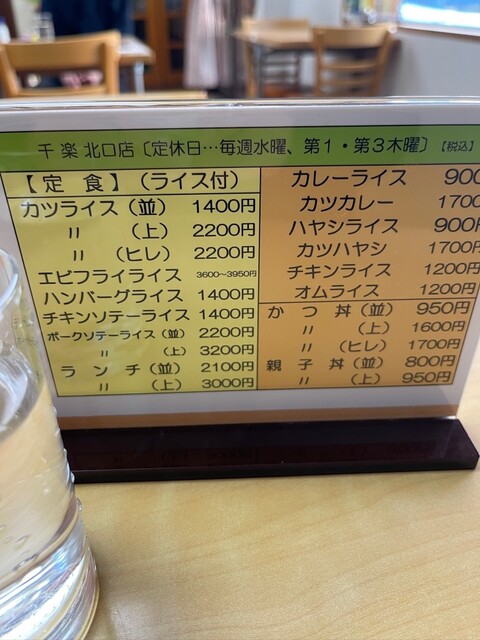 千楽 北口店〔定休日…毎週水曜、第1・第3木曜〕【税込】
【定食】（ライス付）
カツライス（並） 1400円
〃 （上） 2200円
〃 （ヒレ） 2200円
エビフライライス 3600～3950円
ハンバーグライス 1400円
チキンソテーライス 1400円
ポークソテーライス（並） 2200円
〃 （上） 3200円
ランチ（並） 2100円
〃 （上） 3000円
カレーライス 900
カツカレー 1700
ハヤシライス 900円
カツハヤシ 1700円
チキンライス 1200円
オムライス 1200円
かつ丼（並） 950円
〃 （上） 1600円
〃 （ヒレ） 1700円
親子丼（並） 800円
〃 （上） 950円